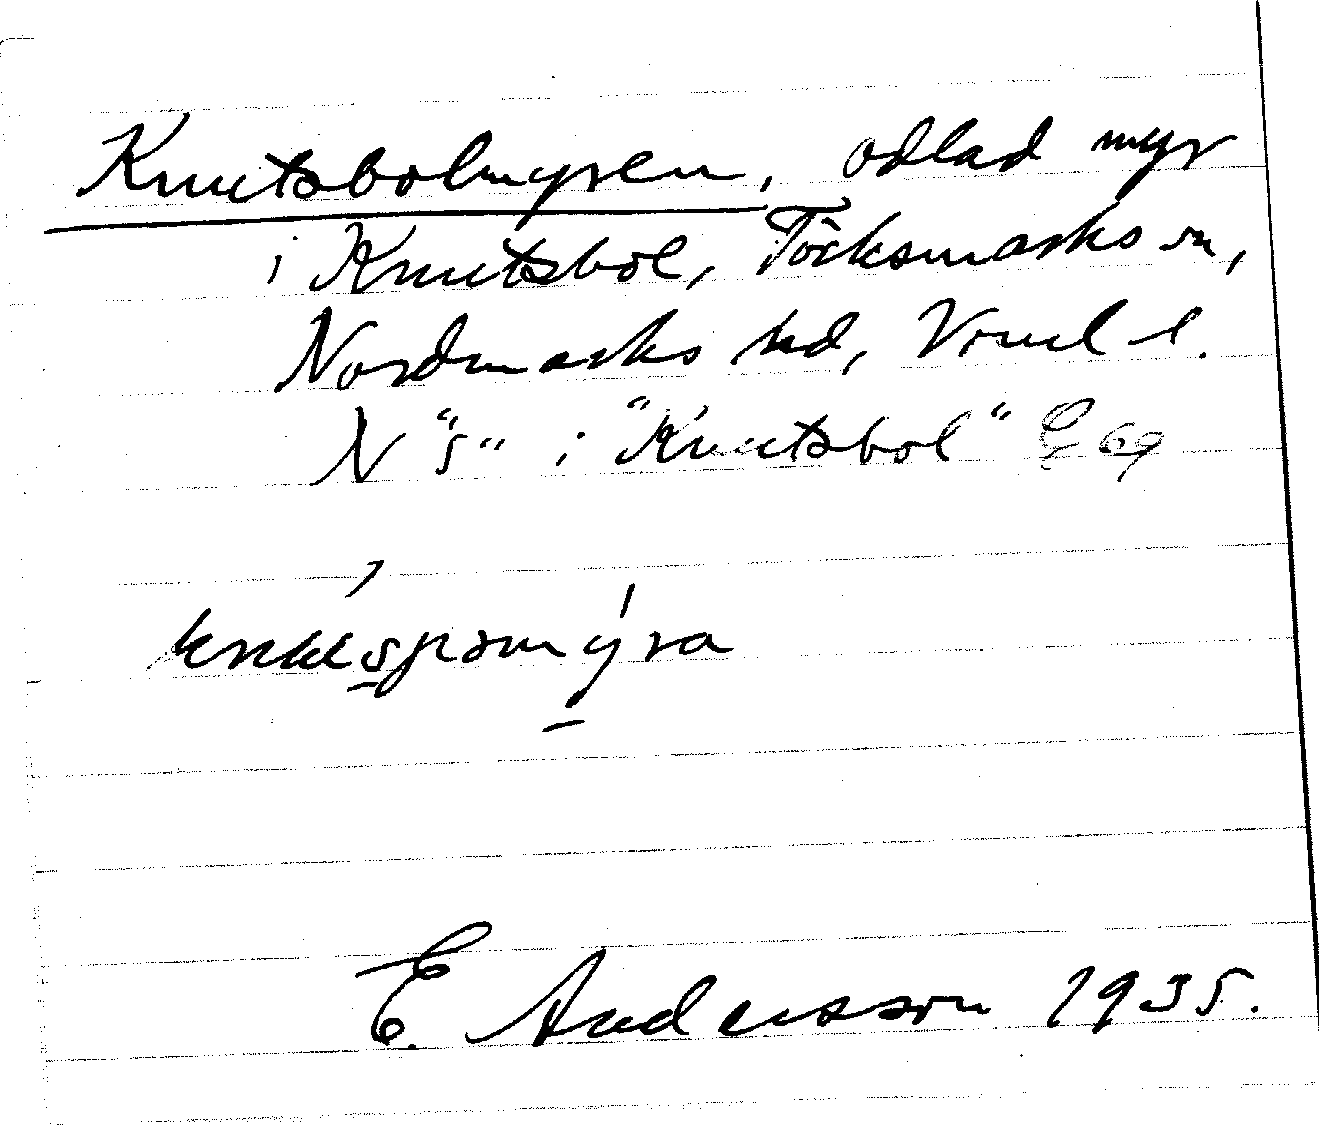 Knutsbolmyren, odlad myr
i Knutsbol, Töcksmarks sn,
Nordmarks hd, Vrml l.
N "5" i "Knutsbol" E 69
E. Andersson 1935.